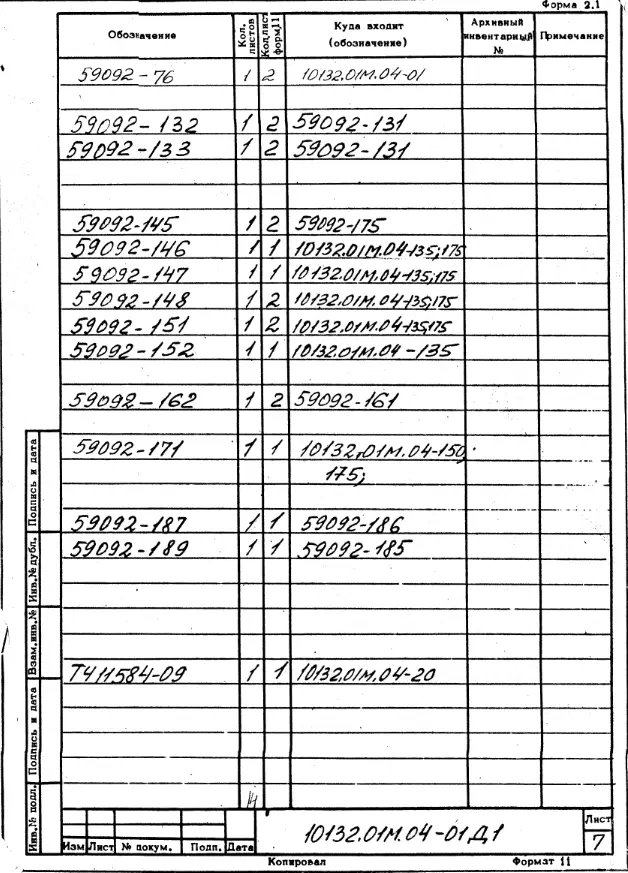 Форма 2.1
Обозначение | Кол. листов | Кол.лист. форм.11 | Куда входит (обозначение) | Архивный инвентарный № | Примечание
59092-76 1 2 10132.01М.04-01
59092-132 1 2 59092-131
59092-133 1 2 59092-131
59092-145 1 2 59092-175
59092-146 1 1 10132.01М.04-135;175
59092-147 1 1 10132.01М.04-135;175
59092-148 1 2 10132.01М.04-135;175
59092-151 1 2 10132.01М.04-135;175
59092-152 1 1 10132.01М.04-135
59092-162 1 2 59092-161
59092-171 1 1 10132.01М.04-150;
175;
59092-187 1 1 59092-186
59092-189 1 1 59092-185
Т411584-09 1 1 10132.01М.04-20
Подпись и дата
Инв.№ дубл.
Взам.инв.№
Подпись и дата
Инв.№ подл.
14
10132.01М.04-01Д1
Лист
7
Изм Лист № докум. Подп. Дата
Копировал Формат 11